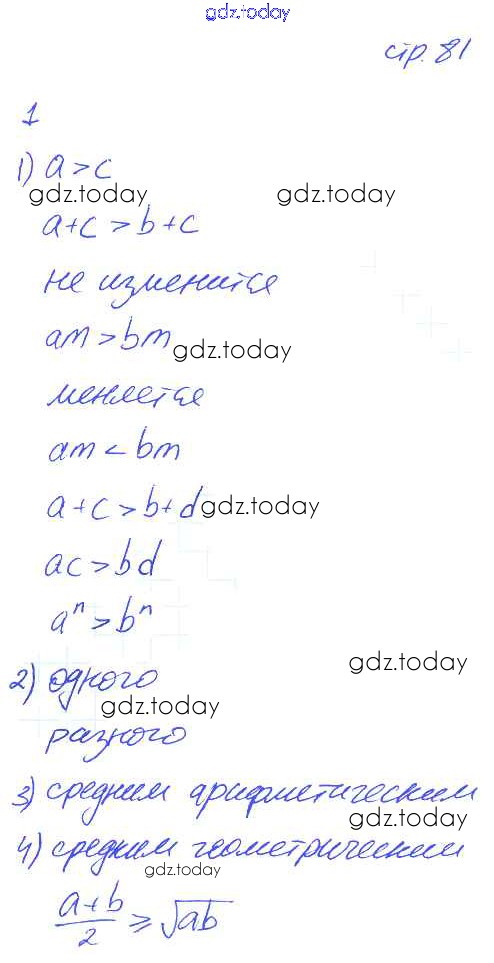 gdz.today
стр. 81
1
1) a > c
gdz.today gdz.today
a+c > b+c
не изменится
am > bm
gdz.today
меняется
am < bm
a+c > b+d
gdz.today
ac > bd
aⁿ > bⁿ
gdz.today
2) одного
gdz.today
разного
3) средним арифметическим
gdz.today
4) средним геометрическим
gdz.today
(a+b)/2 ≥ √ab
gdz.today